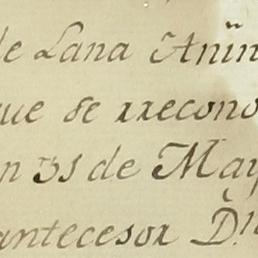 de Lana Añin
que se rrecono
n 31 de May
antecesor D.n